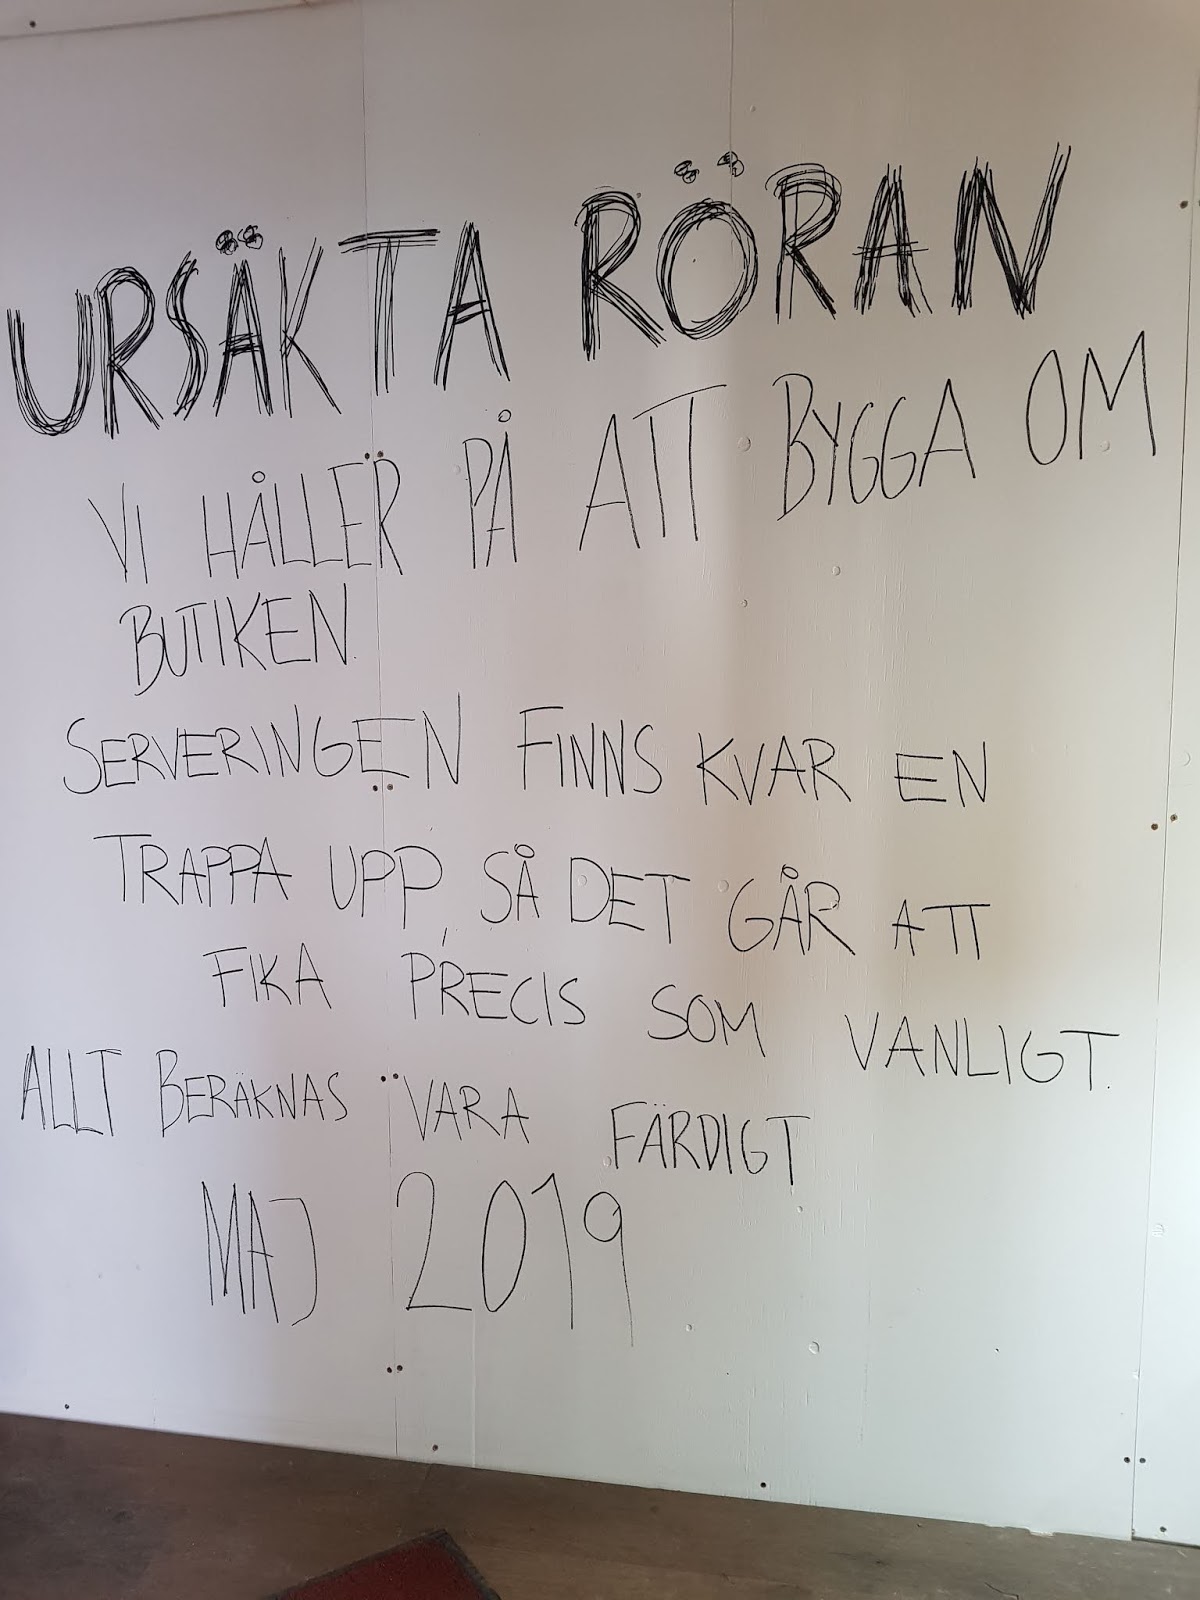 URSÄKTA RÖRAN
VI HÅLLER PÅ ATT BYGGA OM
BUTIKEN.
SERVERINGEN FINNS KVAR EN
TRAPPA UPP, SÅ DET GÅR ATT
FIKA PRECIS SOM VANLIGT.
ALLT BERÄKNAS VARA FÄRDIGT
MAJ 2019